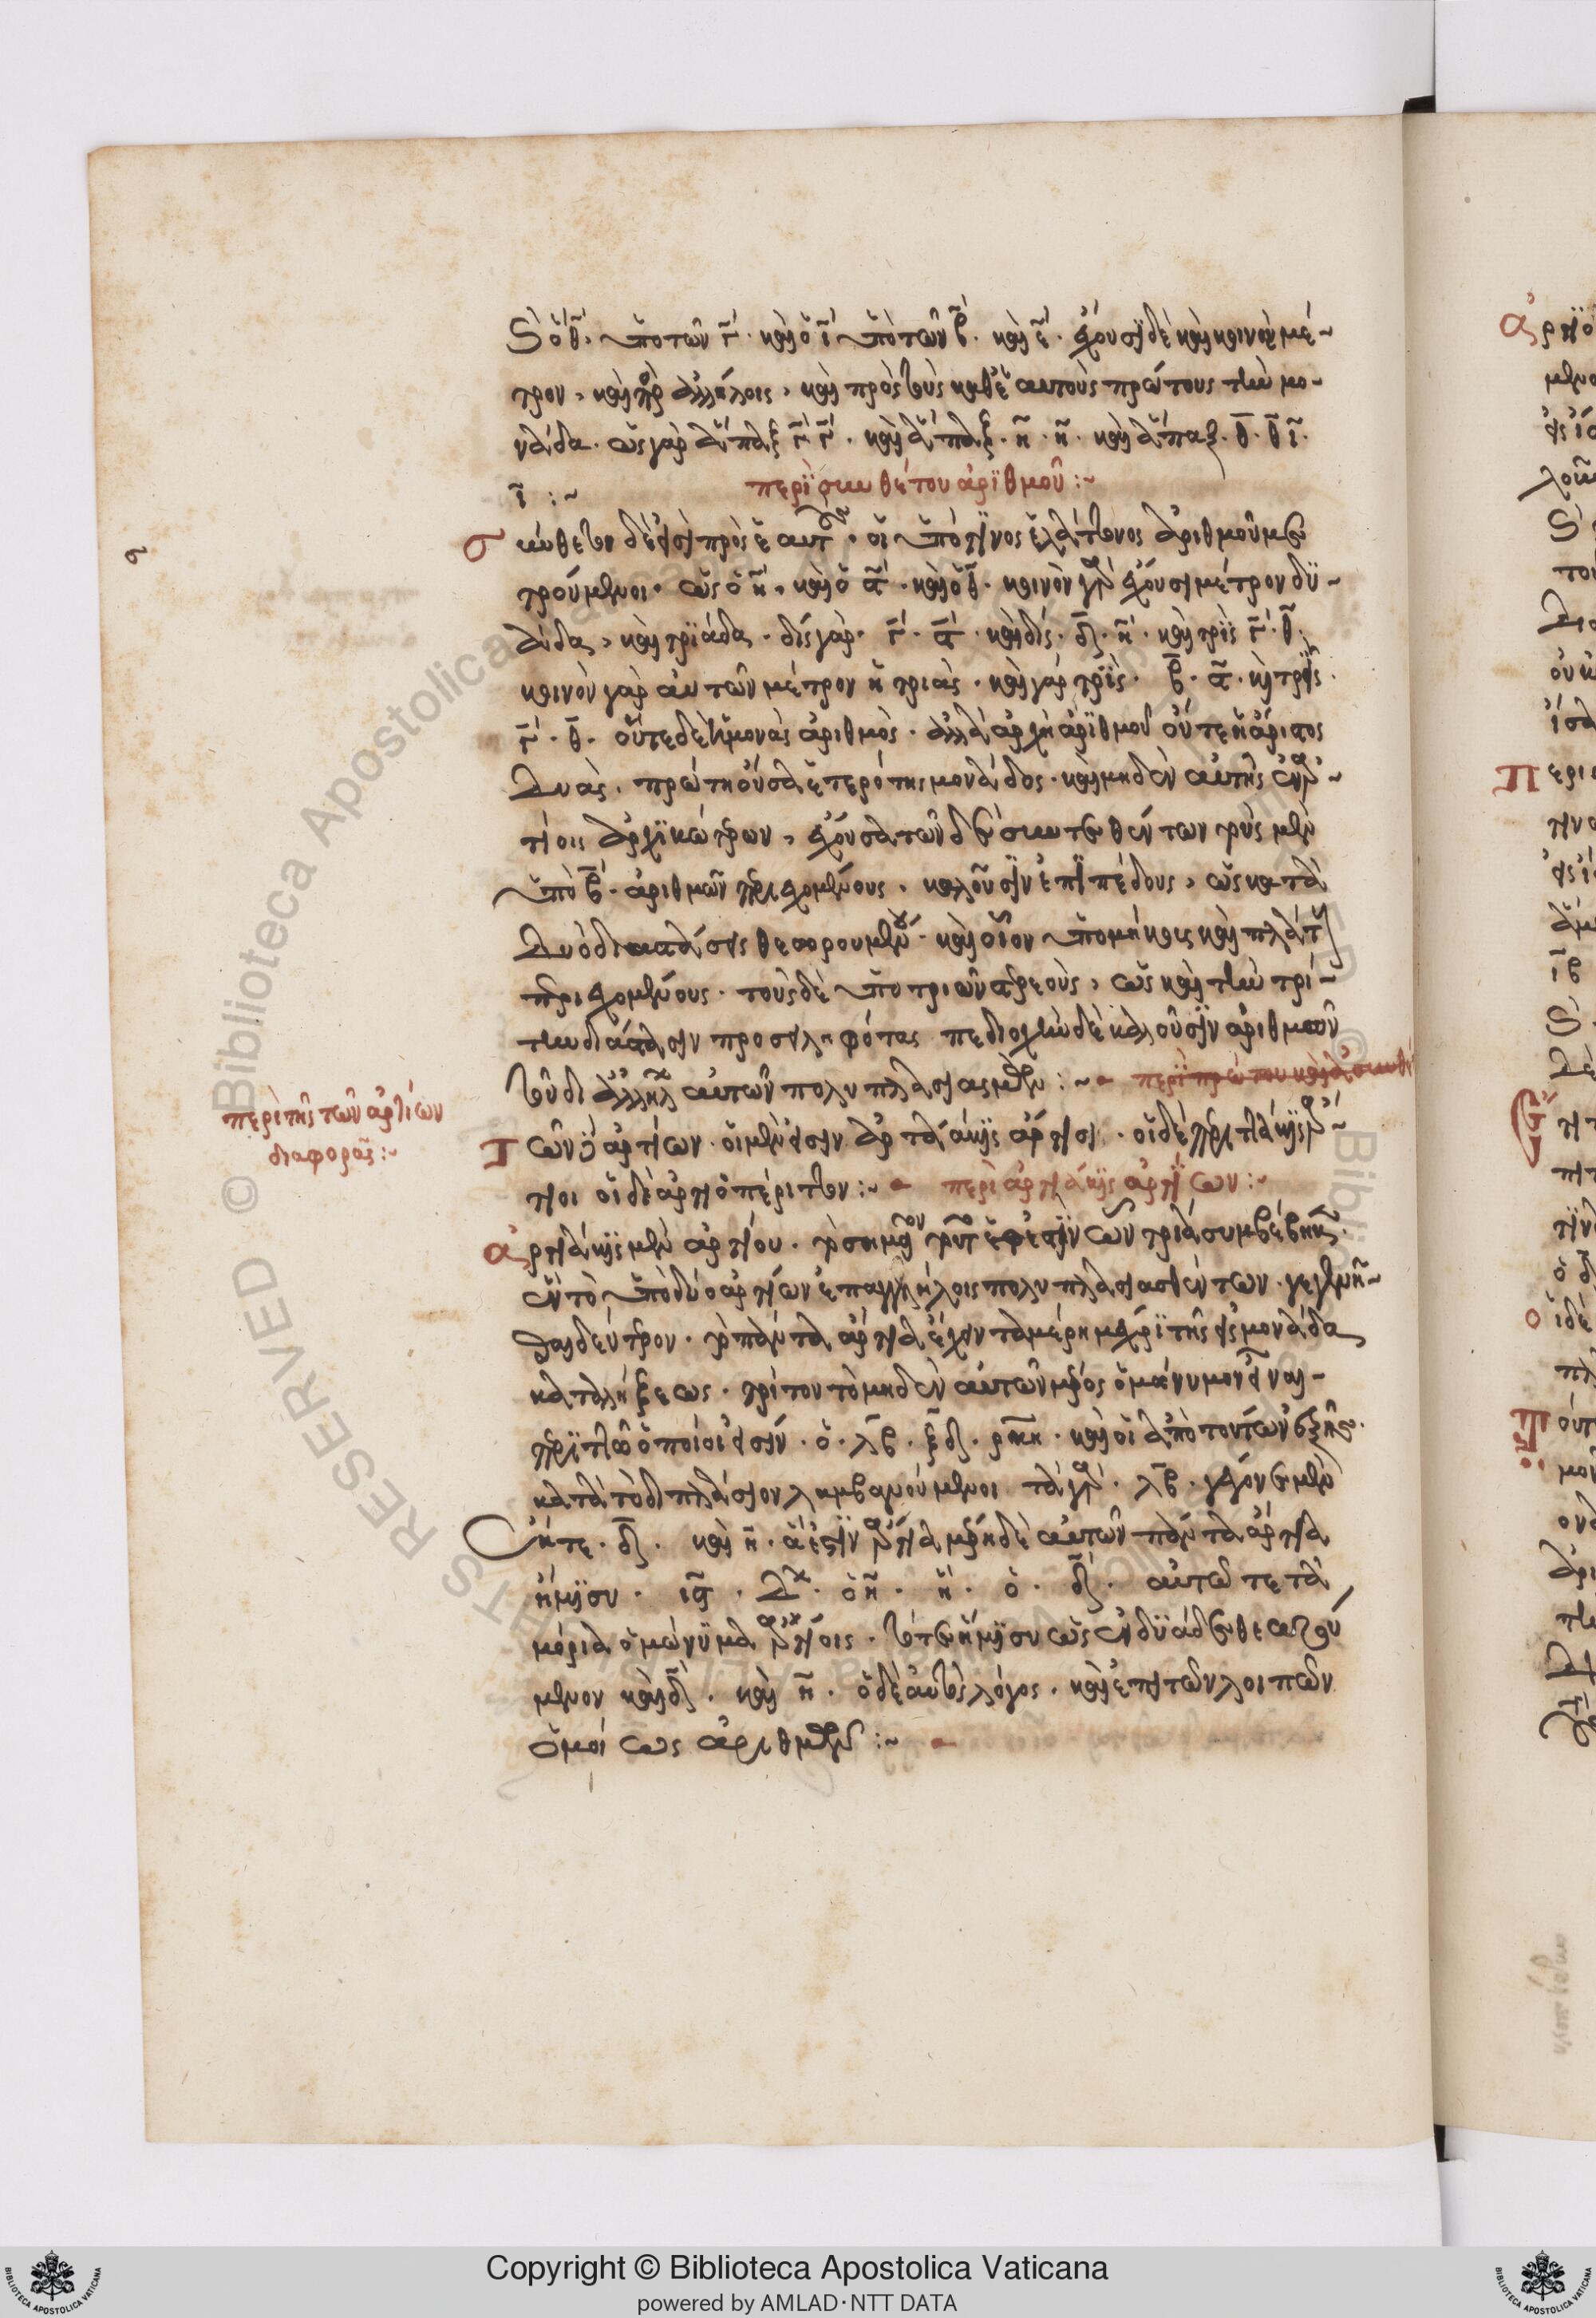 καὶ ὁ θ̄. ὑπὸ τῶν γ̄. καὶ ὁ ῑ ὑπὸ τῶν β̄. καὶ ε̄. ἔχουσι δὲ καὶ κοινὸν μέ-
τρον, καὶ παρ ἀλλήλοις, καὶ πρὸς τοὺς καθ' ἑαυτοὺς πρώτους τὴν μο-
νάδα. ὡς γὰρ ἅπαξ γ̄ γ̄. καὶ ἅπαξ. η̄. η̄. καὶ ἅπαξ. θ̄. θ̄ ῑ.
ῑ :~ περὶ συνθέτου ἀριθμοῦ :~
σ ύνθετοι δέ εἰσι πρὸς ἑαυτοὺς. οἱ ὑπό τινος ἐλάττονος ἀριθμοῦ με
τρούμενοι. ὡς ὁ η̄, καὶ ὁ ϛ̄. καὶ ὁ θ̄. κοινὸν γὰρ ἔχουσι μέτρον δυ-
άδα, καὶ τριάδα. δὶς γὰρ. γ̄. ϛ̄. καὶ δίς. δ̄. η̄. καὶ τρὶς γ̄. θ̄.
κοινὸν γὰρ αὐτῶν μέτρον ἡ τριάς. καὶ γὰρ τρίς. β̄. ϛ̄. καὶ τρὶς.
γ̄. θ̄. οὔτε δὲ ἡ μονὰς ἀριθμός. ἀλλὰ ἀρχὴ ἀριθμοῦ οὔτε ἡ ἀόριστος
δυάς. πρώτη οὖσα ἑτερότης μονάδος. καὶ μηδὲν αὐτῆς ἐν ἀρ-
τίοις ἀρχικώτερον, ἔχουσα τῶν δὲ συντεθέντων τοὺς μὲν
ὑπὸ β̄. ἀριθμῶν περιεχομένους. καλοῦσιν ἐπιπέδους, ὡς κατὰ
δύο διαστάσεις θεωρουμένους. καὶ οἷον ὑπὸ μήκους καὶ πλάτους
περιεχομένους. τοὺς δὲ ὑπὸ τριῶν στερεούς, ὡς καὶ τὴν τρί-
την διάστασιν προσειληφότας περιοχὴν δὲ καλοῦσιν ἀριθμῶν
τὸν δι' ἀλλήλων αὐτῶν πολυπλασιασμόν :~ περὶ πρώτου καὶ ἀσυνθέ
περὶ τῆς τῶν ἀρτίων
διαφορᾶς :~
Τ ῶν δ' ἀρτίων. οἱ μέν εἰσιν ἀρτιάκις ἄρτιοι. οἱ δὲ περιττάκις ἄρ-
τιοι οἱ δὲ ἀρτιοπέριττοι :~ περὶ ἀρτιάκις ἀρτίων :~
ἀ ρτιάκις μὲν ἀρτίου. τὸ σημεῖον τοῦτο ἐστὶν ὧν τρία συμβέβηκε.
ἓν τὸ ὑπὸ δύο ἀρτίων ἐπ' ἀλλήλοις πολυπλασιασθέντων. γεγενῆ-
σθαι δεύτερον. τὸ πάντα ἄρτια ἔχειν τὰ μέρη μέχρι τῆς εἰς μονάδα
καταλήξεως. τρίτον τὸ μηδὲν αὐτῶν μέρος ὁμώνυμον εἶναι
περιττῷ ὁποῖοί εἰσιν. ὁ. λ̄β̄. ξ̄δ̄. ρ̄κ̄η̄. καὶ οἱ ἀπὸ τούτων ἑξῆς.
κατὰ τὸ διπλάσιον λαμβανόμενοι τὰ γὰρ. λ̄β̄. γέγονε μὲν
ἔκ τε. δ̄. καὶ η̄. ἅ ἐστιν ἄρτια μέρη δὲ αὐτῶν πάντα ἄρτια
ἥμισυ. ῑϛ̄. δ. ὁ η̄. η̄. ὁ. δ̄. αὐτῶ τε τὰ
μόρια ὁμώνυμα ἀρτίοις. τό τε ἥμισυ ὡς ἐν δυάδι θεωρού
μενον καὶ δ̄. καὶ η̄. ὁ δὲ αὐτὸς λόγος. καὶ ἐπὶ τῶν λοιπῶν
ὁμοίως ἀριθμῶν :~